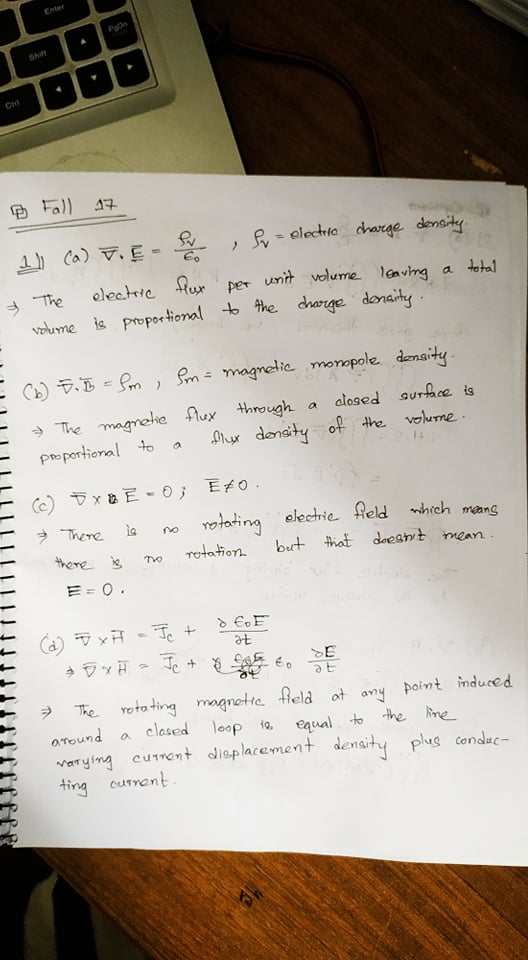 Enter
Shift
PgDn
Ctrl
Fall 17
1 (a) ∇̅.E̅ = ρv/ε₀ , ρv = electric charge density.
⇒ The electric flux per unit volume leaving a total
volume is proportional to the charge density.
(b) ∇̅.B̅ = ρm , ρm = magnetic monopole density.
⇒ The magnetic flux through a closed surface is
proportional to a flux density of the volume.
(c) ∇̅ × E̅ = 0 ; E̅ ≠ 0.
⇒ There is no rotating electric field which means
there is no rotation but that doesn't mean.
E = 0.
(d) ∇̅ × H̅ = J̅c + ∂ε₀E̅/∂t
⇒ ∇̅ × H̅ = J̅c + ε₀ ∂E̅/∂t
⇒ The rotating magnetic field at any point induced
around a closed loop is equal to the line
varying current displacement density plus conduc-
ting current.